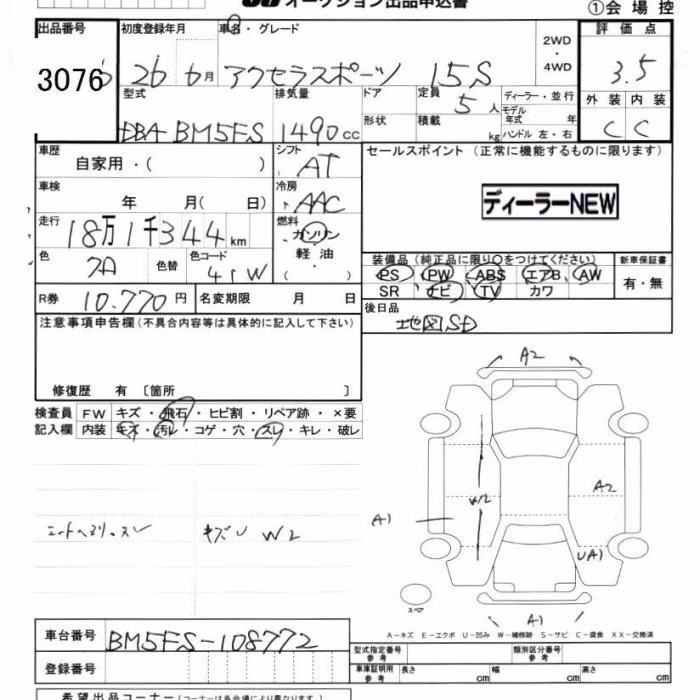 オークション出品申込書
①会場控
出品番号 初度登録年月 車名・グレード 2WD 4WD 評価点
3076 26 6月 アクセラスポーツ 15S 3.5
型式 排気量 ドア 定員 5人 ディーラー・並行 外装 内装
DBA BM5FS 1490cc 形状 積載 kg モデル年式 年 ハンドル 左・右 C C
車歴 自家用・( ) シフト AT セールスポイント (正常に機能するものに限ります)
車検 年 月(日) 冷房 AAC ディーラーNEW
走行 18万1千344km 燃料 ガソリン・軽油・( )
色 色替 色コード 41W
装備品 (純正品に限り○をつけてください) 新車保証書
PS PW ABS エアB AW 有・無
SR ナビ TV カワ
R券 10.770円 名変期限 月 日 後日品
地図SD
注意事項申告欄(不具合内容等は具体的に記入して下さい)
修復歴 有 〔箇所 〕
検査員 FW キズ・飛石・ヒビ割・リペア跡・×要
記入欄 内装 キズ・汚レ・コゲ・穴・スレ・キレ・破レ
A2
W2 A2
A1
UA1
シートヘリ・スレ キズU W2
スペア
A1
A－キズ E－エクボ U－凹み W－補修跡 S－サビ C－腐食 XX－交換済
車台番号 BM5FS-108772
型式指定番号 参考 類別区分番号 参考
登録番号 車庫証明用 参考 長さ cm 幅 cm 高さ cm
希望出品コーナー(コーナーは各会場によって